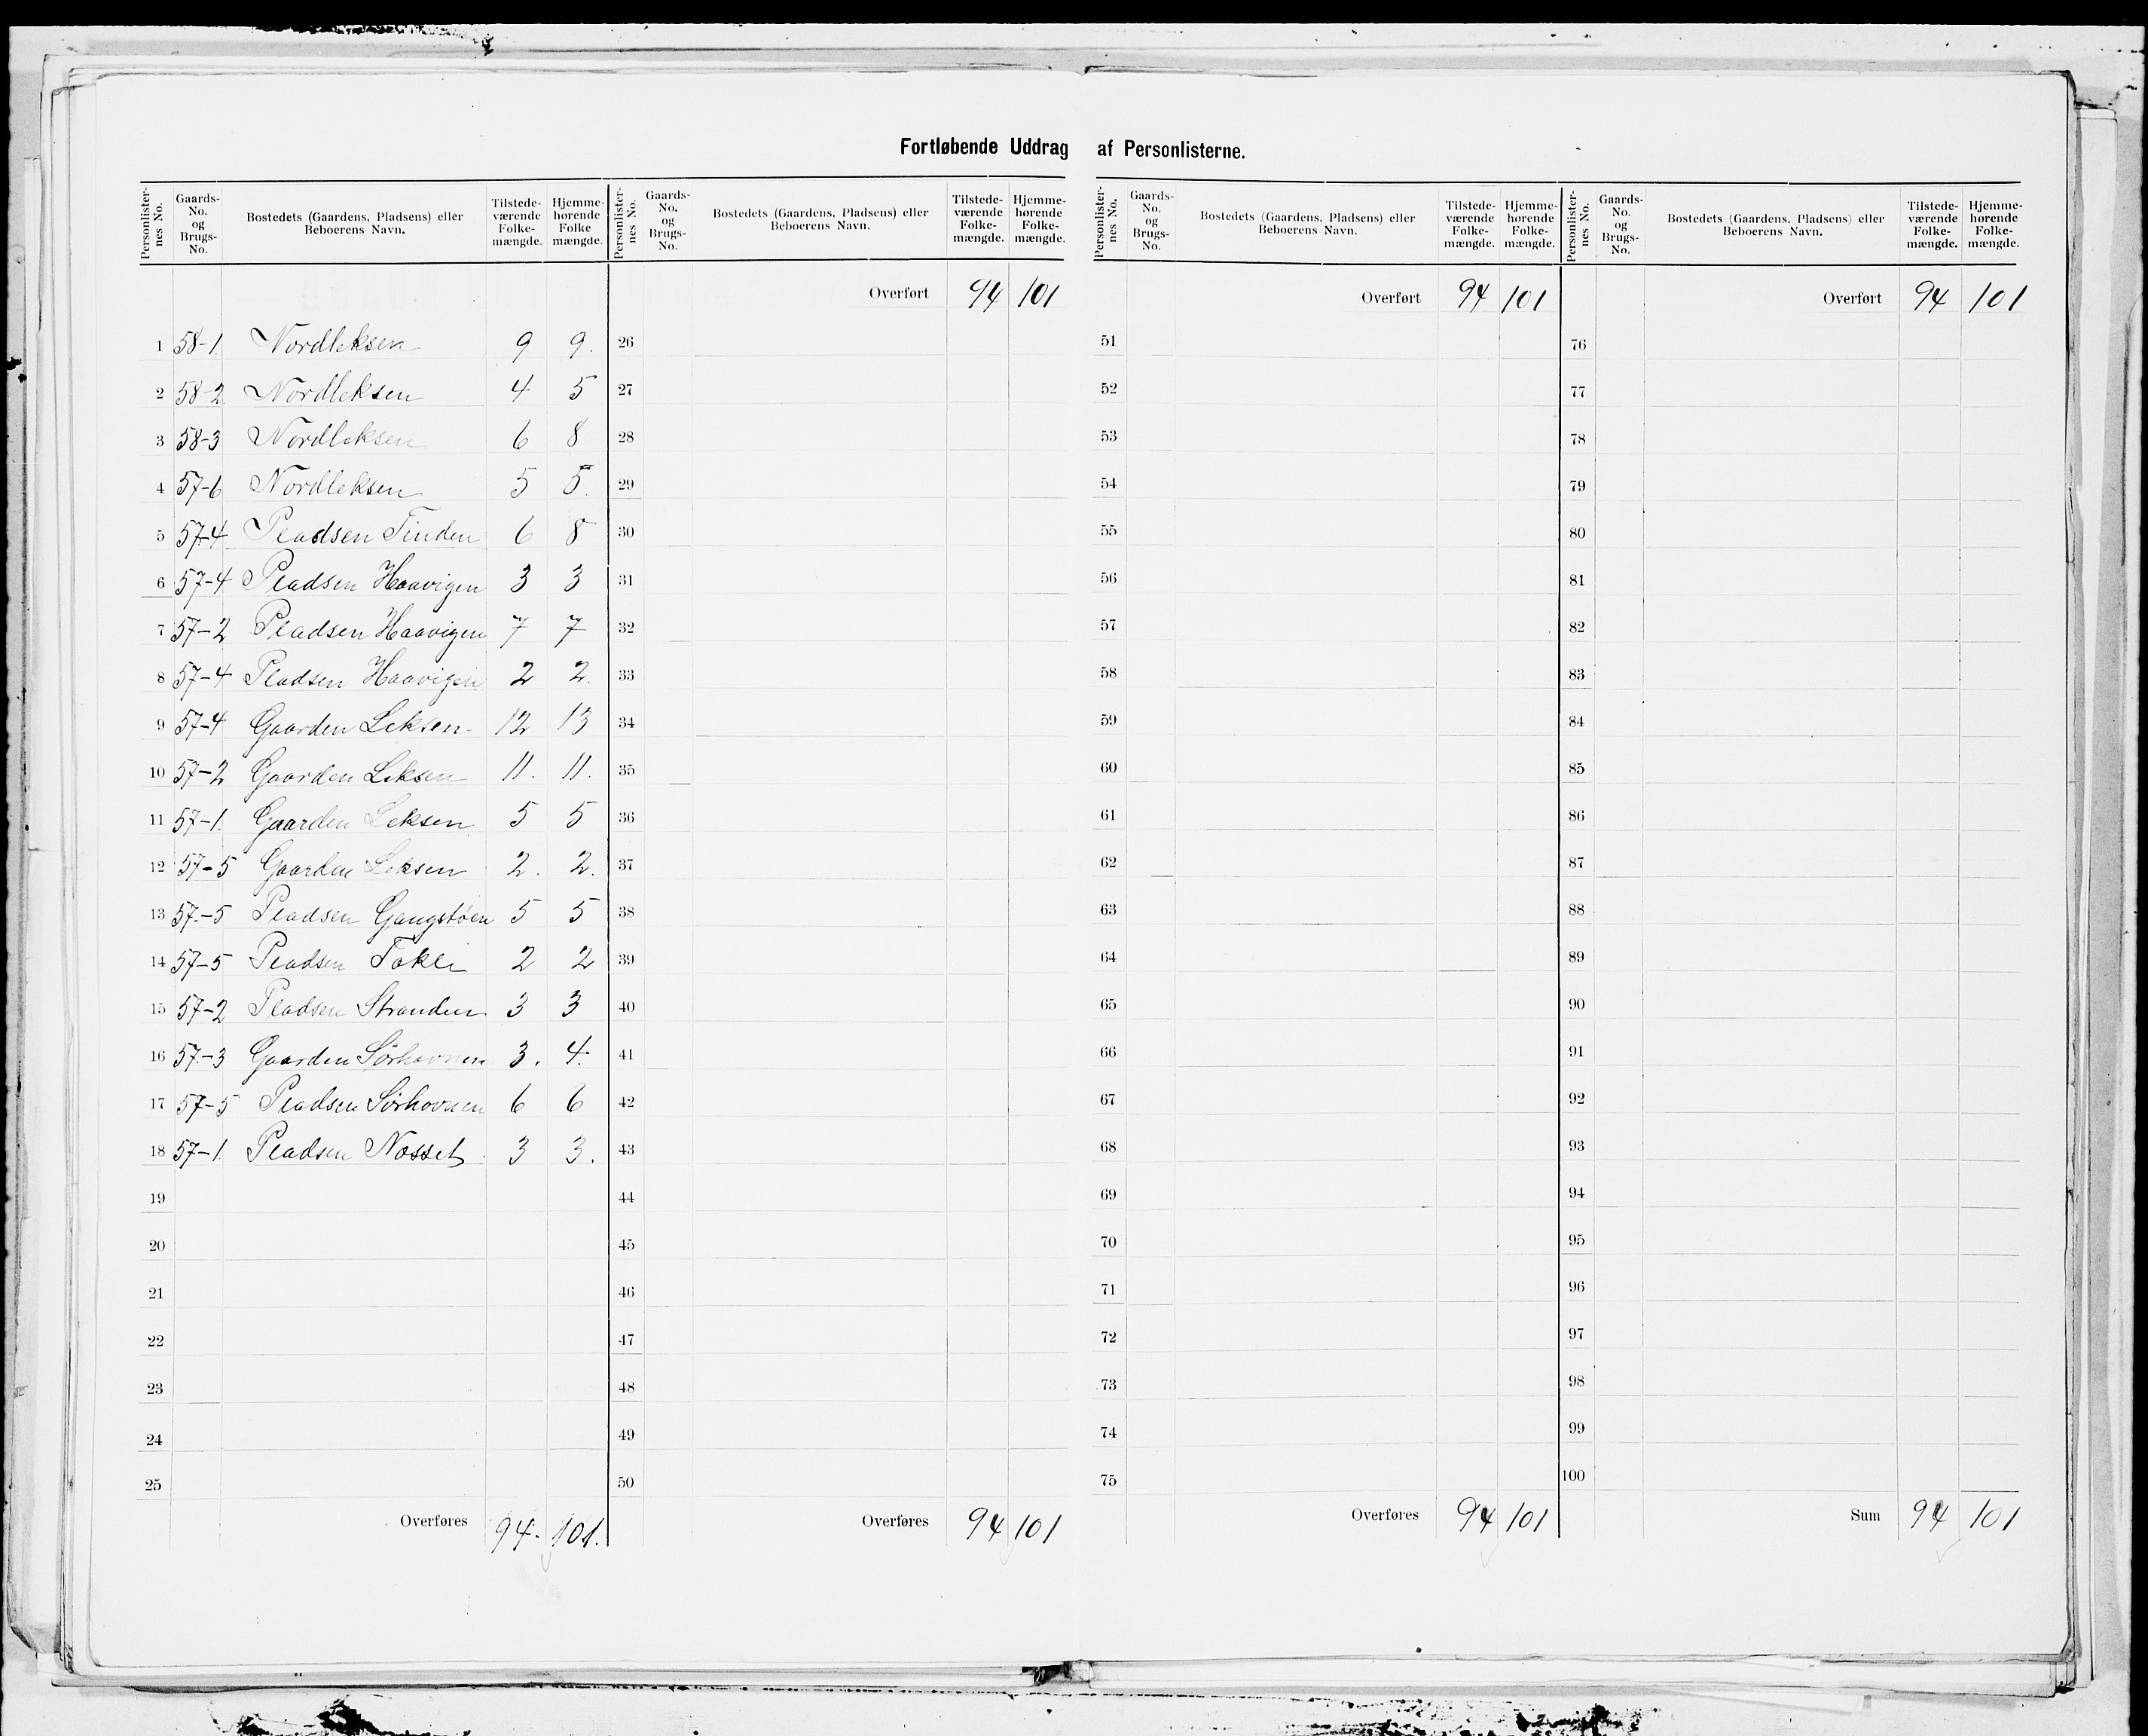 Fortløbende Uddrag af Personlisterne.
Personlisternes No. Gaards-No. og Brugs-No. Bostedets (Gaardens, Pladsens) eller Beboerens Navn. Tilstedeværende Folkemængde. Hjemmehørende Folkemængde.
1 58-1 Nordleksen 9 9.
2 58-2 Nordleksen 4 5
3 58-3 Nordleksen 6 8
4 57-6 Nordleksen 5 5.
5 57-4 Pladsen Tinden 6 8
6 57-4 Pladsen Haavigen 3 3
7 57-2 Pladsen Haavigen 7 7
8 57-4 Pladsen Haavigen 2 2.
9 57-4 Gaarden Leksen 12 13
10 57-2 Gaarden Leksen 11. 11.
11 57-1. Gaarden Leksen 5 5
12 57-5 Gaarden Leksen 2. 2.
13 57-5 Pladsen Gangstøen 5 5
14 57-5 Pladsen Takli 2 2
15 57-2 Pladsen Stranden 3 3
16 57-3 Gaarden Sørhovnen 3. 4.
17 57-5 Pladsen Sørhovnen 6 6
18 57-1. Pladsen Nosset 3 3.
19
20
21
22
23
24
25
Overføres 94. 101.
Personlisternes No. Gaards-No. og Brugs-No. Bostedets (Gaardens, Pladsens) eller Beboerens Navn. Tilstedeværende Folkemængde. Hjemmehørende Folkemængde.
Overført 94 101
26
27
28
29
30
31
32
33
34
35
36
37
38
39
40
41
42
43
44
45
46
47
48
49
50
Overføres 94 101
Personlisternes No. Gaards-No. og Brugs-No. Bostedets (Gaardens, Pladsens) eller Beboerens Navn. Tilstedeværende Folkemængde. Hjemmehørende Folkemængde.
Overført 94 101
51
52
53
54
55
56
57
58
59
60
61
62
63
64
65
66
67
68
69
70
71
72
73
74
75
Overføres 94 101
Personlisternes No. Gaards-No. og Brugs-No. Bostedets (Gaardens, Pladsens) eller Beboerens Navn. Tilstedeværende Folkemængde. Hjemmehørende Folkemængde.
Overført 94 101
76
77
78
79
80
81
82
83
84
85
86
87
88
89
90
91
92
93
94
95
96
97
98
99
100
Sum 94 101